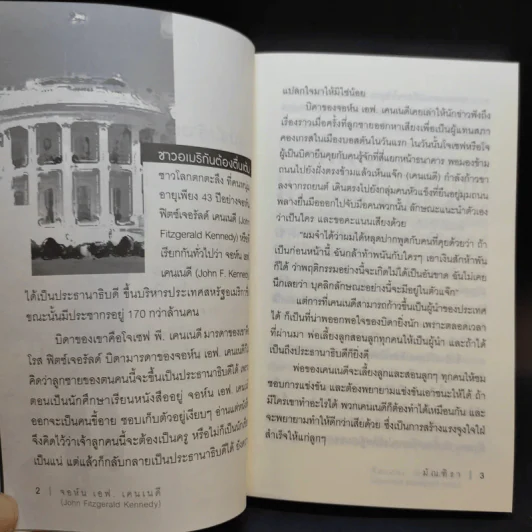 ชาวอเมริกันต้องตื่นเต้น
ชาวโลกตกตะลึง ที่คนหนุ่ม
อายุเพียง 43 ปีอย่างจอห์น
ฟิตซ์เจอรัลด์ เคนเนดี (John
Fitzgerald Kennedy) หรือที่
เรียกกันทั่วไปว่า จอห์น เอฟ
เคนเนดี (John F. Kennedy)
ได้เป็นประธานาธิบดี ขึ้นบริหารประเทศสหรัฐอเมริกา
ขณะนั้นมีประชากรอยู่ 170 กว่าล้านคน
บิดาของเขาคือโจเซฟ พี. เคนเนดี มารดาของเขาคือ
โรส ฟิตซ์เจอรัลด์ บิดามารดาของจอห์น เอฟ. เคนเนดี
คิดว่าลูกชายของตนคนนี้จะขึ้นเป็นประธานาธิบดีได้
ตอนเป็นนักศึกษาเรียนหนังสืออยู่ จอห์น เอฟ. เคนเนดี
ออกจะเป็นคนขี้อาย ชอบเก็บตัวอยู่เงียบๆ อ่านแต่หนังสือ
จึงคิดไว้ว่าเจ้าลูกคนนี้จะต้องเป็นครู หรือไม่ก็เป็นนัก
เป็นแน่ แต่แล้วก็กลับกลายเป็นประธานาธิบดีได้
2 | จอห์น เอฟ. เคนเนดี
(John Fitzgerald Kennedy)
แปลกใจมาให้มิใช่น้อย
บิดาของจอห์น เอฟ. เคนเนดีเคยเล่าให้นักข่าวฟังถึง
เรื่องราวเมื่อครั้งที่ลูกชายออกหาเสียงเพื่อเป็นผู้แทนสภา
คองเกรสในเมืองบอสตันในวันแรก ในวันนั้นโจเซฟหรือโจ
ผู้เป็นบิดายืนคุยกับคนรู้จักที่สี่แยกหน้าธนาคาร พอมองข้าม
ถนนไปยังฝั่งตรงข้ามแล้วเห็นแจ๊ก (เคนเนดี) กำลังก้าวขา
ลงจากรถยนต์ เดินตรงไปยังกลุ่มคนหัวแข็งที่ยืนอยู่มุมถนน
พลางยื่นมือออกไปจับมือคนพวกนั้น ลักษณะแนะนำตัวเอง
ว่าเป็นใคร และขอคะแนนเสียงด้วย
"ผมจำได้ว่าผมได้หลุดปากพูดกับคนที่คุยด้วยว่า ถ้า
เป็นก่อนหน้านี้ ฉันกล้าท้าพนันกับใครๆ เอาเงินสักห้าพัน
ก็ได้ ว่าพฤติกรรมอย่างนี้จะเกิดไม่ได้เป็นอันขาด ฉันไม่เคย
นึกเลยว่า บุคลิกลักษณะอย่างนี้จะมีอยู่ในตัวแจ๊ก"
แต่การที่เคนเนดีสามารถก้าวขึ้นเป็นผู้นำของประเทศ
ได้ ก็เป็นที่น่าพออกพอใจของบิดายิ่งนัก เพราะตลอดเวลา
ที่ผ่านมา พ่อเลี้ยงลูกสอนลูกทุกคนให้เป็นผู้นำ และถ้าได้
เป็นถึงประธานาธิบดีก็ยิ่งดี
พ่อของเคนเนดีจะเลี้ยงลูกและสอนลูกๆ ทุกคนให้ชม
ชอบการแข่งขัน และต้องพยายามแข่งขันเอาชนะให้ได้ ถ้า
มีใครเขาทำอะไรได้ พวกเคนเนดีก็ต้องทำได้เหมือนกัน และ
จะพยายามทำให้ดีกว่าเสียด้วย ซึ่งเป็นการสร้างแรงจูงใจใฝ่
สำเร็จให้แก่ลูกๆ
มัณฑิรา | 3